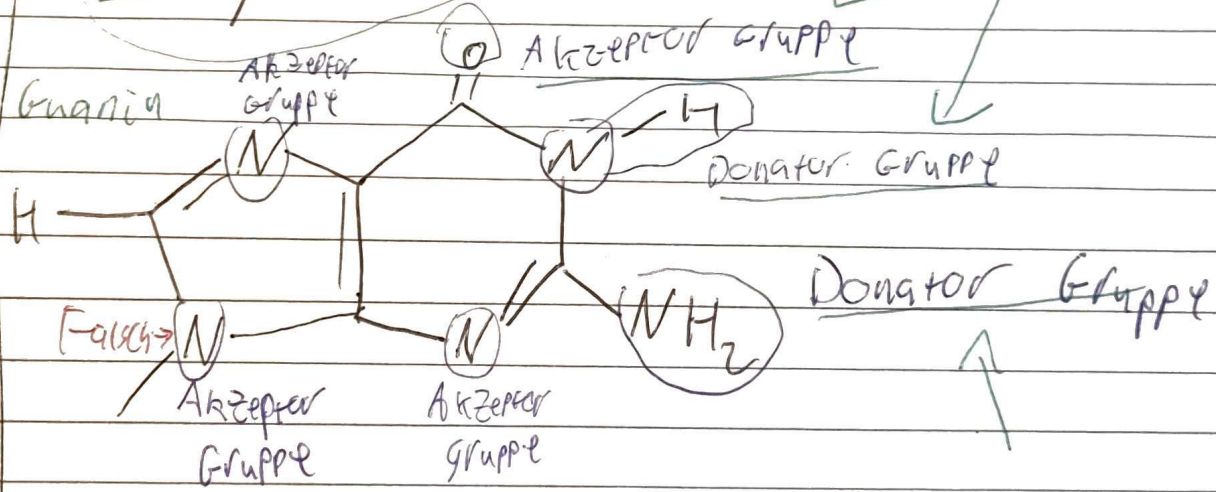 O Akzeptor Gruppe
Akzeptor
Gruppe
Guanin
N
N H
Donator Gruppe
H
NH2 Donator Gruppe
Falsch→ N
N
Akzeptor
Gruppe
Akzeptor
gruppe